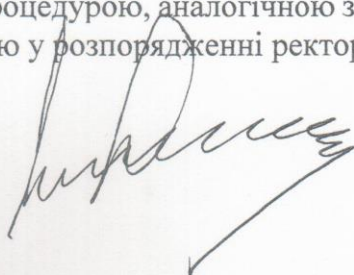 роцедурою, аналогічною з
ю у розпорядженні ректор